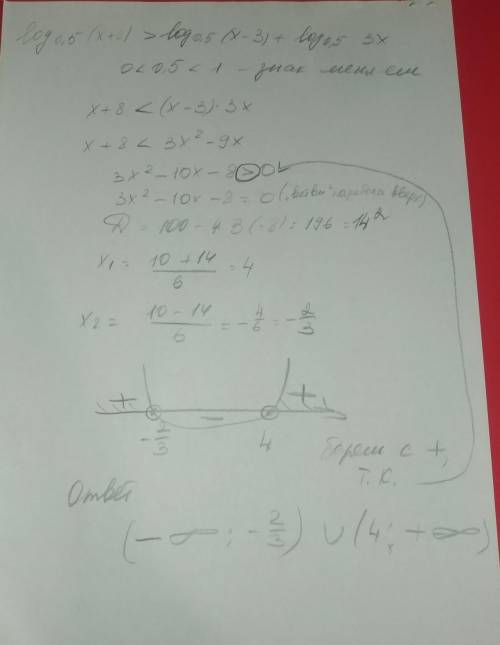 log₀,₅(x+8) > log₀,₅(x-3) + log₀,₅ 3x
0 < 0,5 < 1 - знак меняем
x+8 < (x-3)·3x
x+8 < 3x² - 9x
3x² - 10x - 8 > 0
3x² - 10x - 8 = 0 ( парабола вверх)
D = 100 - 4·3(-8) = 196 = 14²
x₁ = (10 + 14)/6 = 4
x₂ = (10 - 14)/6 = -4/6 = -2/3
+ - +
-2/3 4
Берем с +,
т.к.
Ответ
(-∞; -2/3) ∪ (4; +∞)